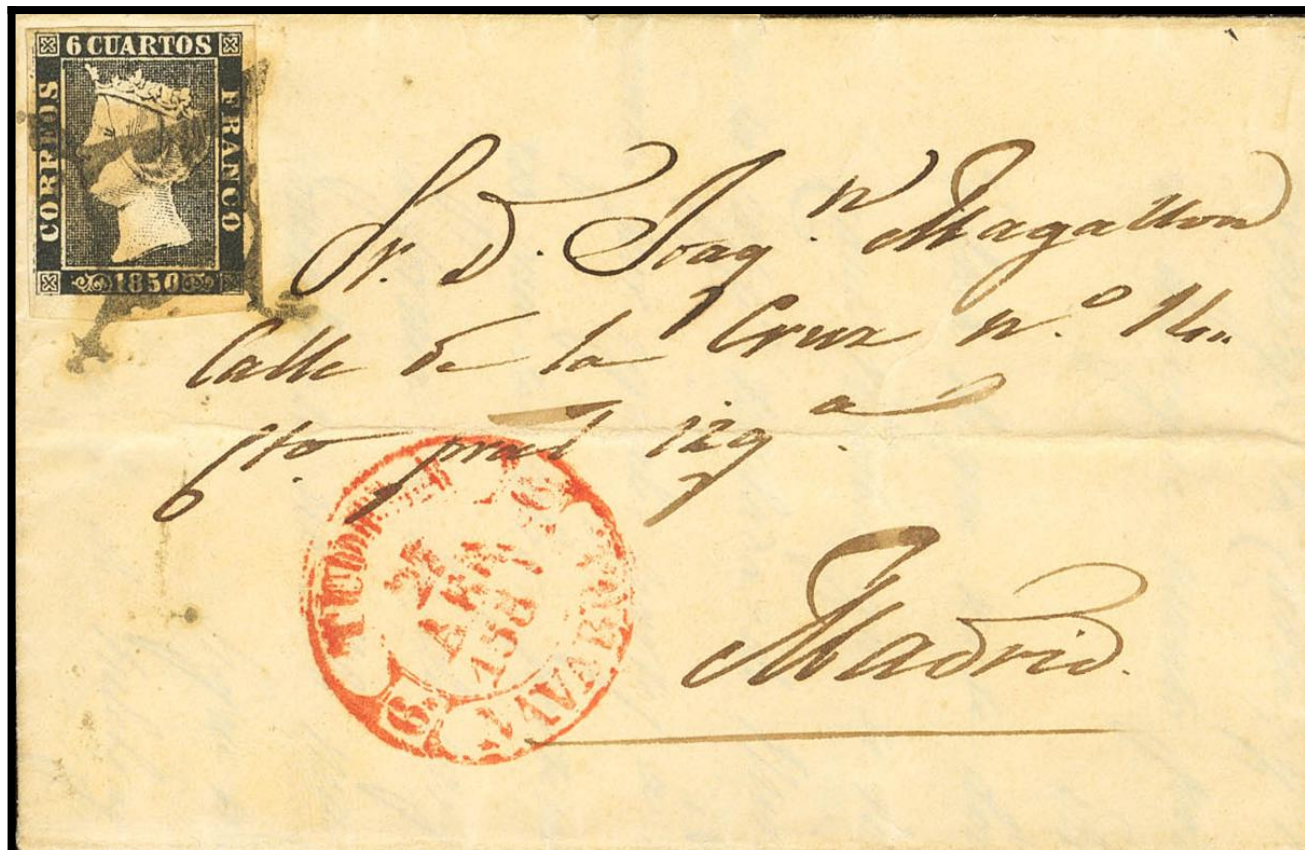 6 CUARTOS
CORREOS
FRANCO
1850
Sr. D. Joaqn. Magallon
Calle de la Cruz nº 14
pral izqa.
Madrid.
TUDELA 6
ABR
NAVARRA
6